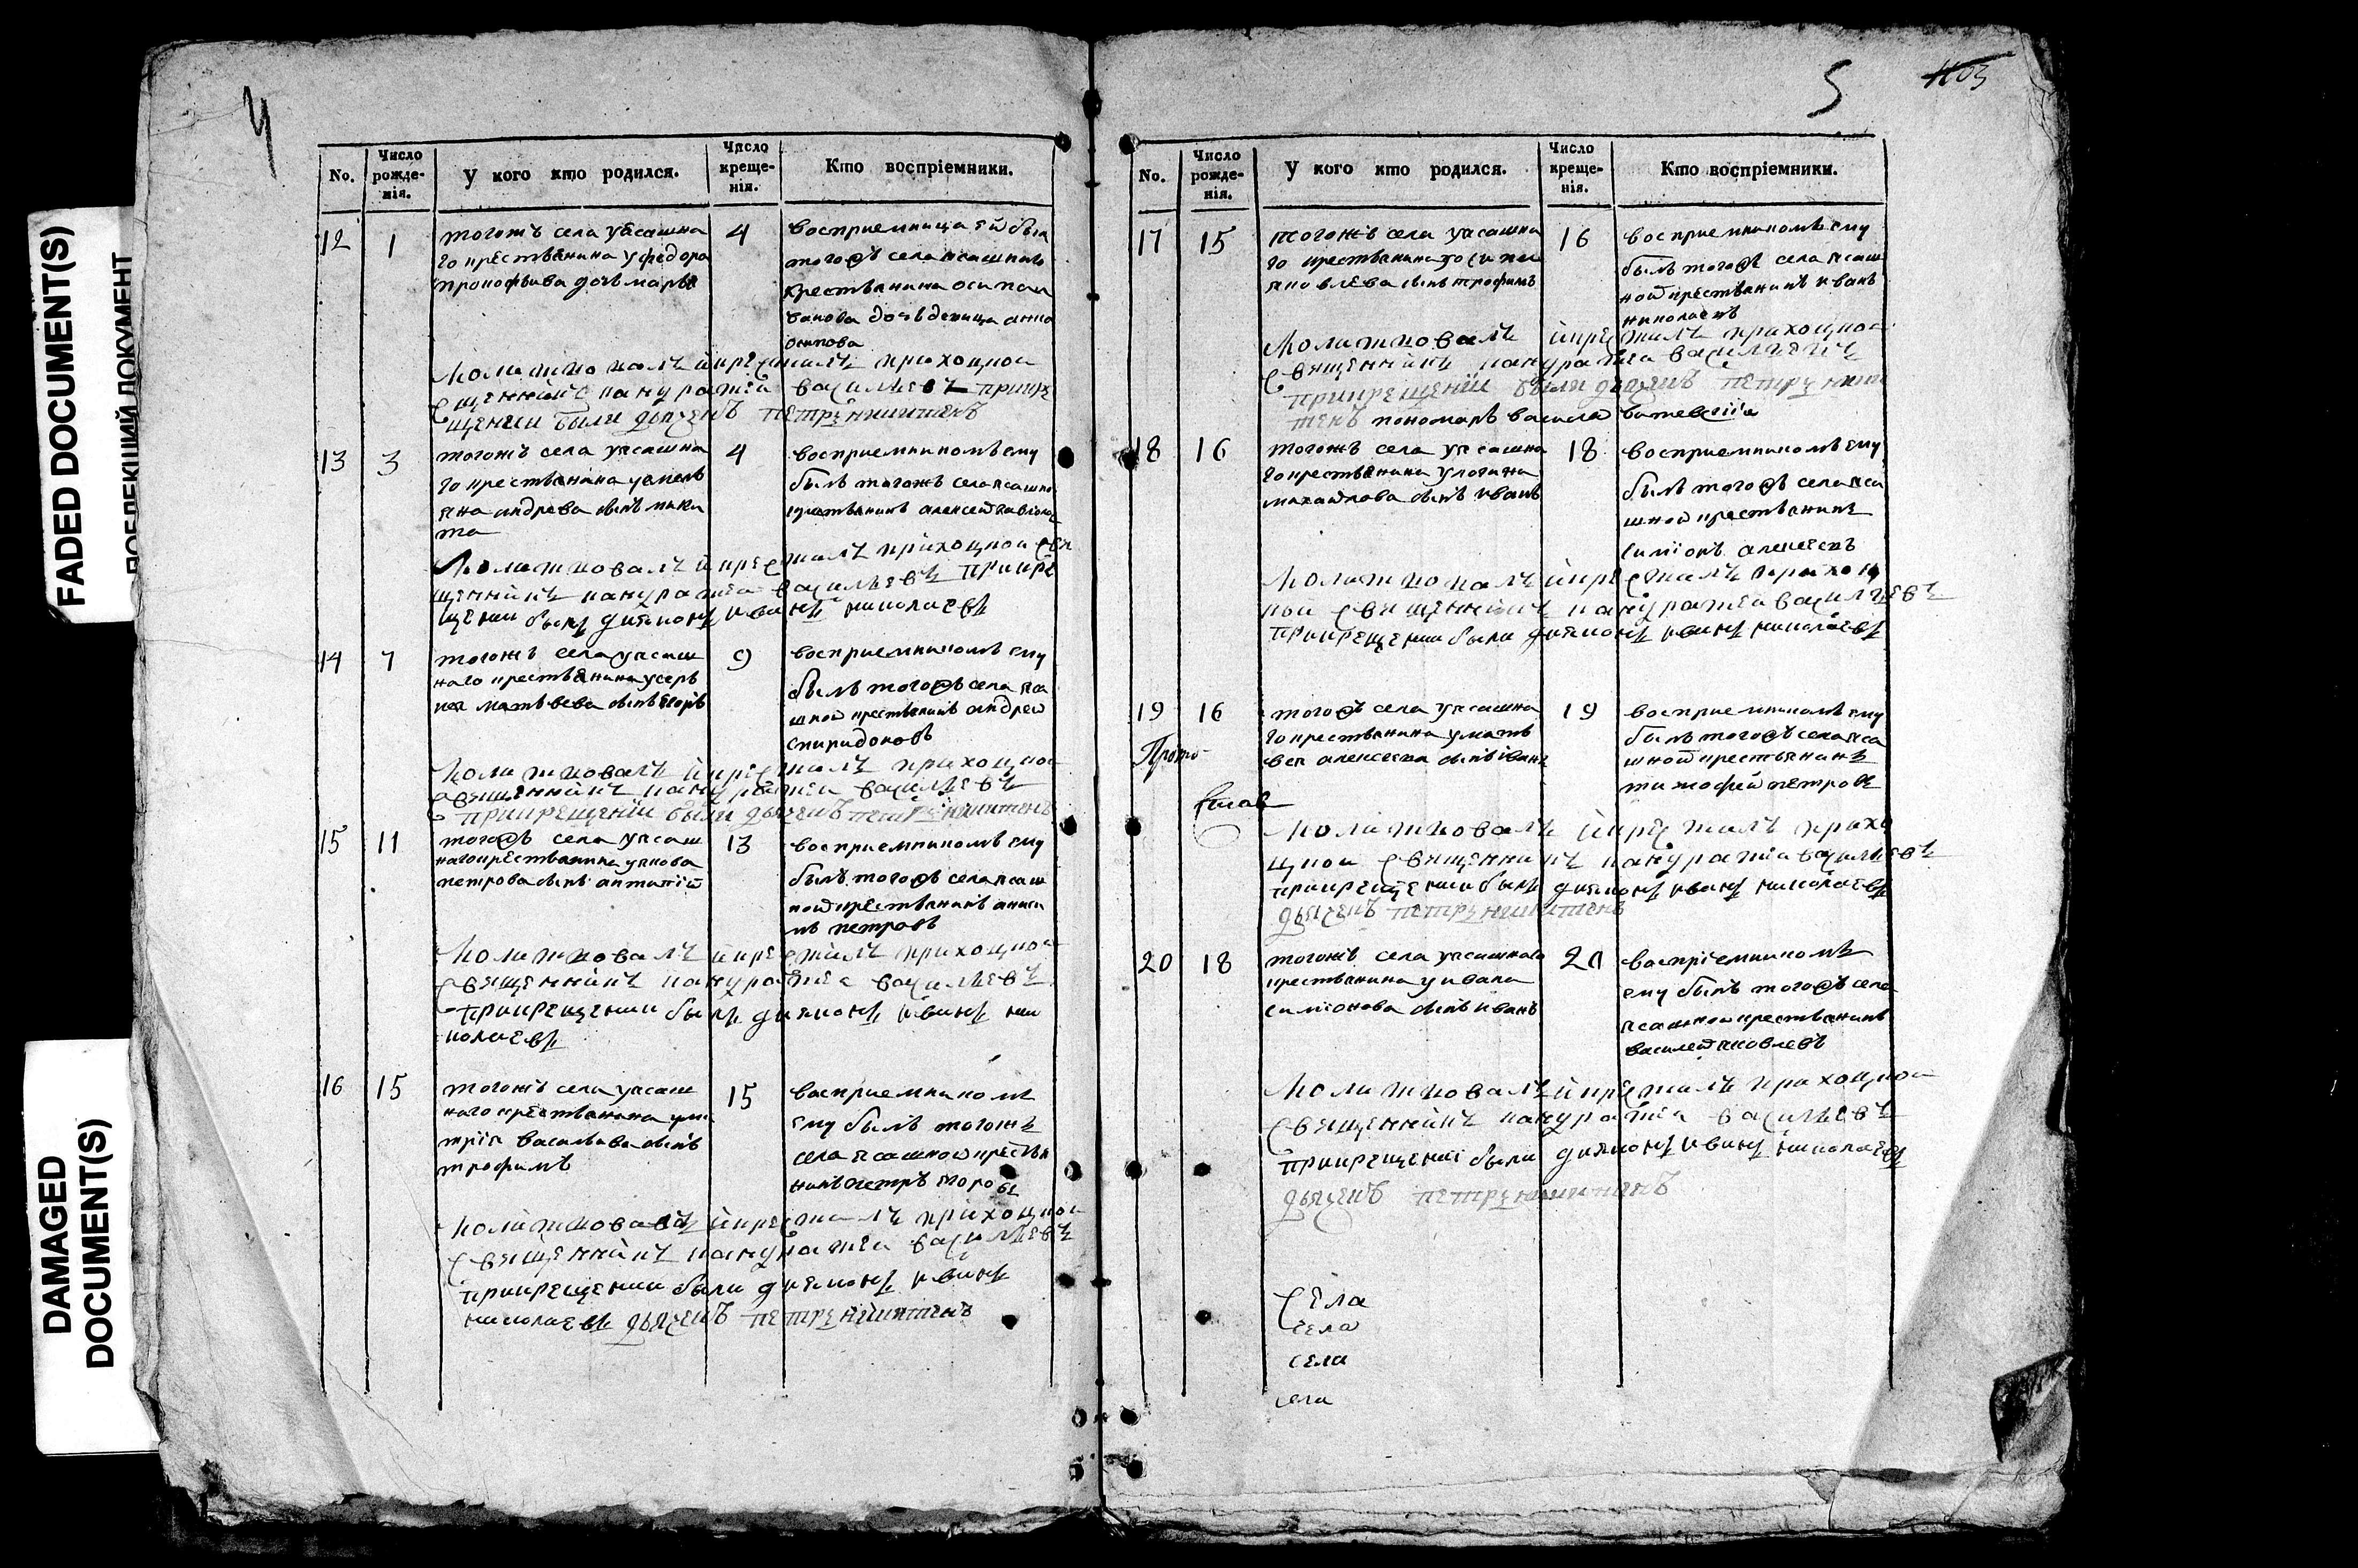 FADED DOCUMENT(S)
DAMAGED
DOCUMENT(S)
4
No.
Число
рожде-
нія.
У кого кто родился.
Число
креще-
нія.
Кто воспріемники.
12
1
тогожъ села уясашна
го крестьянина уфедора
прокофьива дочь марья
4
восприемница ей была
тогожъ села ясашнаго
крестьянина осипа
дочь девица анна
осипова
молитвовалъ икрестилъ приходцкои
священникъ панкратеи васильевъ прикре
щении были дьячекъ петръ никитенъ
13
3
тогожъ села уясашна
го крестьянина уемель
яна андрева сынъ ники
та
4
восприемникомъ ему
былъ тогожъ села ясашно
крестьянинъ алексей
молитвовалъ икрестилъ приходцкои свя
щенникъ панкратеи васильевъ прикре
щении былъ дияконъ иванъ николаевъ
14
7
тогожъ села уясаш
наго крестьянина усерь
гея матвеева сынъ егоръ
9
восприемникомъ ему
былъ тогожъ села яса
шной крестьянинъ андрей
спиридоновъ
молитвовалъ икрестилъ приходцкои
священникъ панкратеи васильевъ
прикрещении были дьячекъ петръ никитенъ
15
11
тогожъ села уясаш
наго крестьянина уякова
петрова сынъ антипий
13
восприемникомъ ему
былъ тогожъ села ясаш
ной крестьянинъ
петровъ
молитвовалъ икрестилъ приходцкои
священникъ панкратеи васильевъ
прикрещении былъ дияконъ иванъ ни
колаевъ
16
15
тогожъ села уясаш
наго крестьянина уми
трия васильева сынъ
трофимъ
15
восприемникомъ
ему былъ тогожъ
села ясашной крестья
нинъ петръ
молитвовалъ икрестилъ приходцкои
священникъ панкратеи васильевъ
прикрещении были дияконъ иванъ
николаевъ дьячекъ петръ никитенъ
5
1103
No.
Число
рожде-
нія.
У кого кто родился.
Число
креще-
нія.
Кто воспріемники.
17
15
тогожъ села уясашна
го крестьянина уосипа
яковлева сынъ трофимъ
16
восприемникомъ ему
былъ тогожъ села ясаш
ной крестьянинъ иванъ
николаевъ
молитвовалъ икрестилъ приходцкои
священникъ панкратеи васильевъ
прикрещении были дьячекъ петръ ники
тенъ пономарь василей
18
16
тогожъ села уясашна
го крестьянина улогина
михайлова сынъ иванъ
18
восприемникомъ ему
былъ тогожъ села яса
шной крестьянинъ
симіонъ алексеевъ
молитвовалъ икрестилъ приходц
кои священникъ панкратеи васильевъ
прикрещении были дияконъ иванъ николаевъ
19
16
тогожъ села уясашна
го крестьянина уматв
вея алексеева сынъ иванъ
19
восприемникомъ ему
былъ тогожъ села яса
шной крестьянинъ
тимофей петровъ
Прото-
молитвовалъ икрестилъ прихо
дцкои священникъ панкратеи васильевъ
прикрещении былъ дияконъ иванъ николаевъ
дьячекъ петръ никитенъ
20
18
тогожъ села уясашнаго
крестьянина уивана
симіонова сынъ иванъ
20
воспріемникомъ
ему былъ тогожъ села
ясашной крестьянинъ
василей яковлевъ
молитвовалъ икрестилъ приходцкои
священникъ панкратеи васильевъ
прикрещении были дияконъ иванъ николаевъ
дьячекъ петръ никитенъ
села
села
села
села